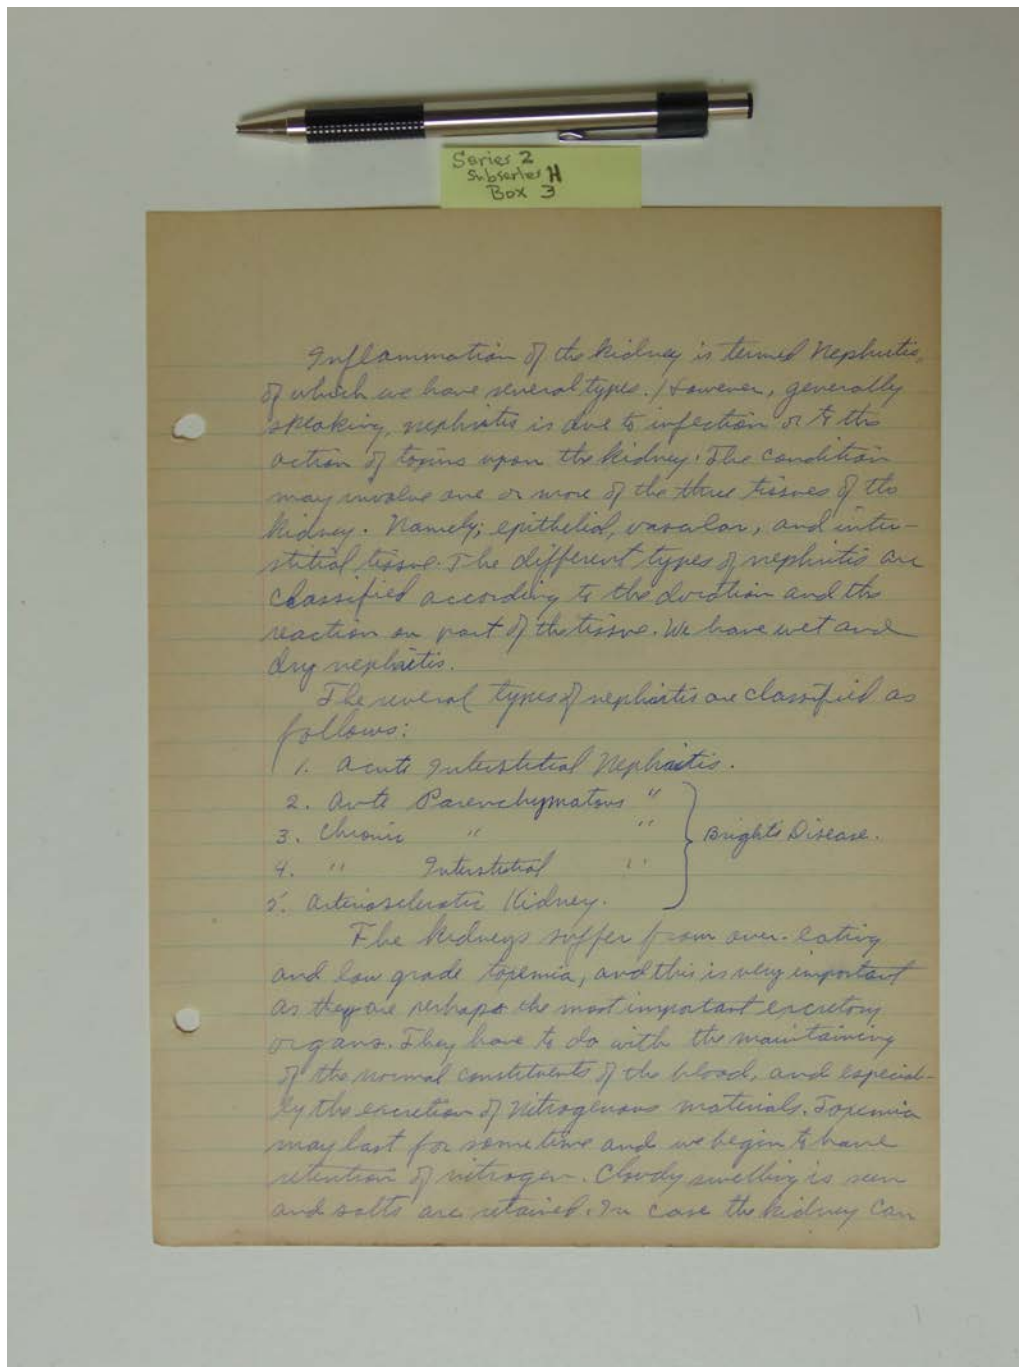 Series 2
Subseries H
Box 3
Inflammation of the kidney is termed Nephritis,
of which we have several types. However, generally
speaking, nephritis is due to infection or to the
action of toxins upon the kidney. The condition
may involve one or more of the three tissues of the
kidney. Namely; epithelial, vascular, and inter-
stitial tissue. The different types of nephritis are
classified according to the duration and the
reaction on part of the tissue. We have wet and
dry nephritis.
The several types of nephritis are classified as
follows:
1. Acute Interstitial Nephritis.
2. Acute Parenchymatous "
3. Chronic " " Bright's Disease.
4. " Interstitial "
5. Arteriosclerotic Kidney.
The kidneys suffer from over-eating
and low grade toxemia, and this is very important
as they are perhaps the most important excretory
organs. They have to do with the maintaining
of the normal constituents of the blood, and especial-
ly the excretion of Nitrogenous materials. Toxemia
may last for some time and we begin to have
retention of nitrogen. Cloudy swelling is seen
and salts are retained. In case the kidney can